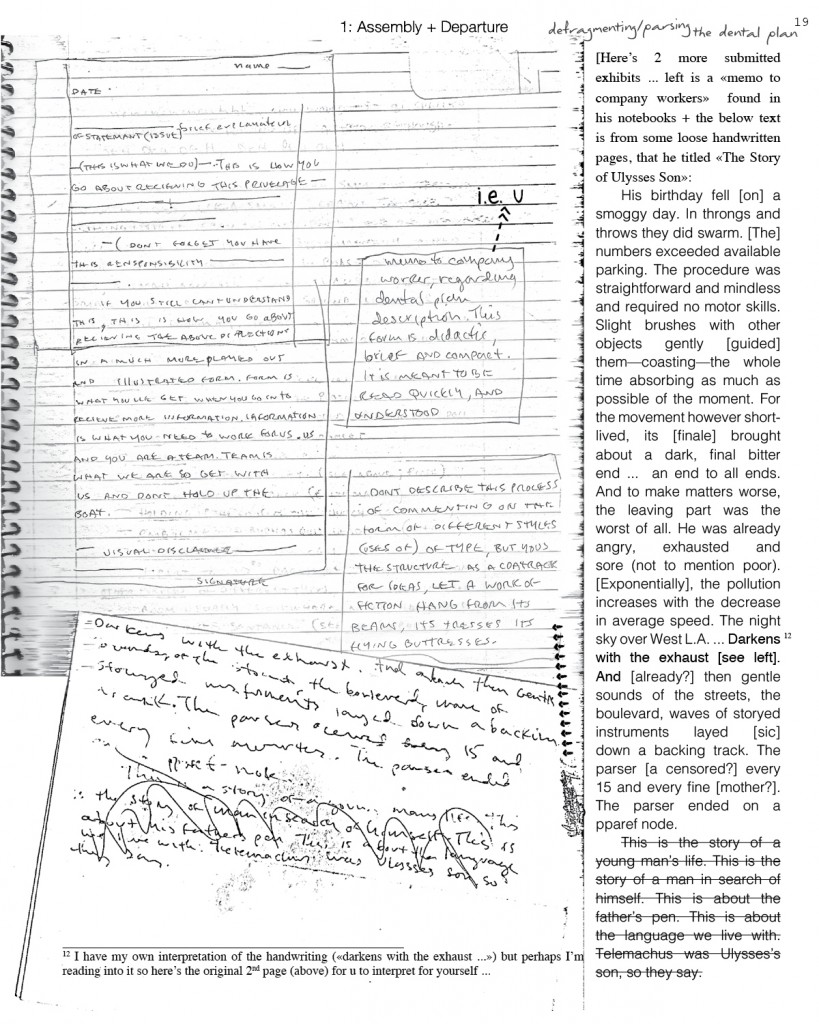 1: Assembly + Departure
defragmenting/parsing the dental plan
19
name
DATE
brief explanation
OF STATEMANT (ISSUE)
(THIS IS WHAT WE DO) — THIS IS HOW YOU
GO ABOUT RECIEVING THIS PRIVERAGE —
—( DONT FORGET YOU HAVE
THIS RENSPONSIBILITY
IF YOU STILL CANT UNDERSTAND
THIS, THIS IS HOW YOU GO ABOUT
RECIEVING THE ABOVE DIRECTIONS
IN A MUCH MORE PLAYED OUT
AND ILLUSTRATED FORM. FORM IS
WHAT YOU'LL GET WHEN YOU GO IN TO
RECIEVE MORE INFORMATION, INFORMATION
IS WHAT YOU NEED TO WORK FOR US. US
AND YOU ARE A TEAM. TEAM IS
WHAT WE ARE SO GET WITH
US AND DONT HOLD UP THE
BOAT.
VISUAL-DISCLAIMER
SIGNATURE
i.e. U
memo to company
worker, regarding
dental plan
description. This
form is didactic,
brief AND COMPACT.
IT IS MEANT TO BE
READ QUICKLY, AND
UNDERSTOOD
DONT DESCRIBE THIS PROCESS
OF COMMENTING ON THE
FORM OF DIFFERENT STYLES
(USES OF) OF TYPE, BUT YOUS
THE STRUCTURE AS A COATRACK
FOR IDEAS, LET A WORK OF
FICTION HANG FROM ITS
BEAMS, ITS TRESSES ITS
FLYING BUTTRESSES.
Darkens with the exhaust. And then gentle
sounds of the streets, the boulevard, waves of
storyed instruments layed down a backing
track. The parser every 15 and
every fine minutes. The parser ended
This is a story of a young mans life. This
is the story of a man in search of himself. This is
about his fathers pen. This is about the language
we live with. Telemachus was Ulysses son, so
they say.
[Here's 2 more submitted
exhibits ... left is a «memo to
company workers» found in
his notebooks + the below text
is from some loose handwritten
pages, that he titled «The Story
of Ulysses Son»:
His birthday fell [on] a
smoggy day. In throngs and
throws they did swarm. [The]
numbers exceeded available
parking. The procedure was
straightforward and mindless
and required no motor skills.
Slight brushes with other
objects gently [guided]
them—coasting—the whole
time absorbing as much as
possible of the moment. For
the movement however short-
lived, its [finale] brought
about a dark, final bitter
end ... an end to all ends.
And to make matters worse,
the leaving part was the
worst of all. He was already
angry, exhausted and
sore (not to mention poor).
[Exponentially], the pollution
increases with the decrease
in average speed. The night
sky over West L.A. ... Darkens 12
with the exhaust [see left].
And [already?] then gentle
sounds of the streets, the
boulevard, waves of storyed
instruments layed [sic]
down a backing track. The
parser [a censored?] every
15 and every fine [mother?].
The parser ended on a
pparef node.
This is the story of a
young man's life. This is the
story of a man in search of
himself. This is about the
father's pen. This is about
the language we live with.
Telemachus was Ulysses's
son, so they say.
12 I have my own interpretation of the handwriting («darkens with the exhaust ...») but perhaps I'm
reading into it so here's the original 2nd page (above) for u to interpret for yourself ...